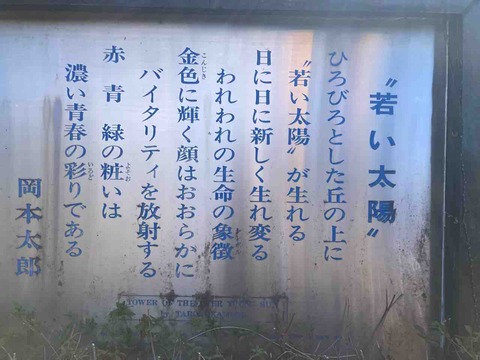 〝若い太陽〟
ひろびろとした丘の上に
〝若い太陽〟が生れる
日に日に新しく生れ変る
われわれの生命の象徴
金色に輝く顔はおおらかに
バイタリティを放射する
赤 青 緑の粧いは
濃い青春の彩りである
岡本太郎
TOWER OF THE